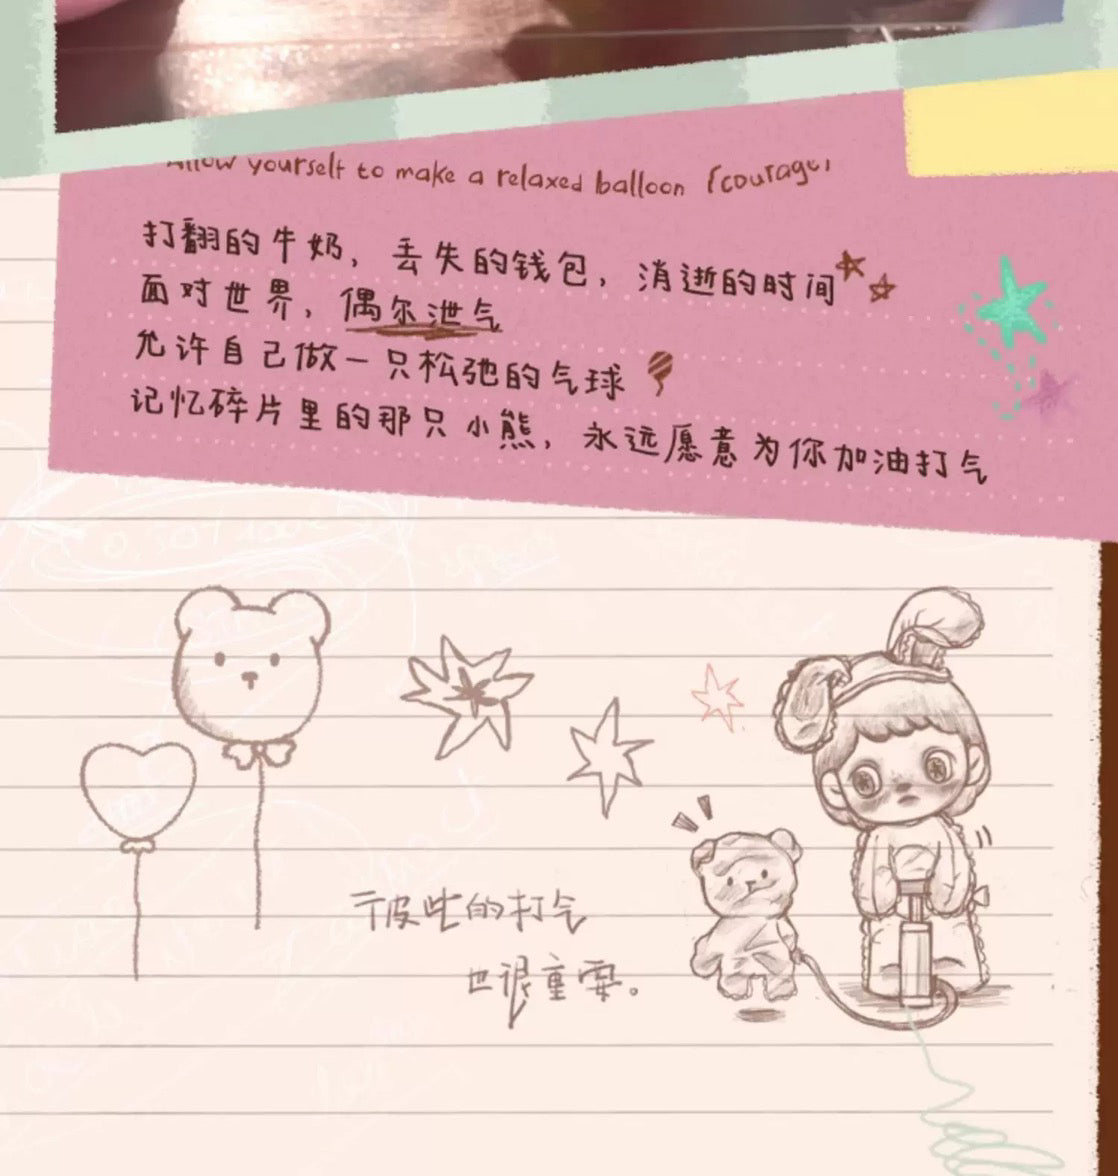 Allow yourself to make a relaxed balloon (courage)
打翻的牛奶，丢失的钱包，消逝的时间
面对世界，偶尔泄气
允许自己做一只松弛的气球
记忆碎片里的那只小熊，永远愿意为你加油打气
彼此的打气
也很重要。